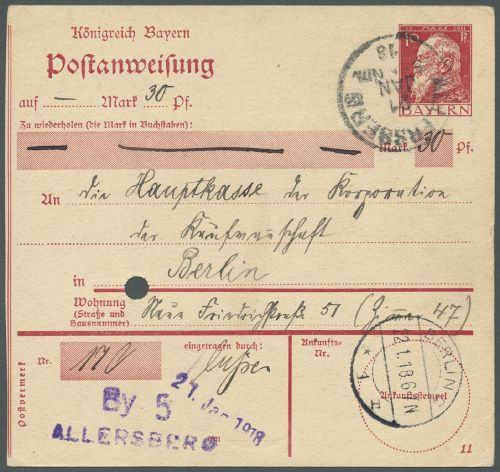 Königreich Bayern
12. MÄRZ 1911
Postanweisung
auf — Mark 30 Pf.
BAYERN
Zu wiederholen (die Mark in Buchstaben):
Mark 30 Pf.
An die Hauptkasse der Korporation
der Kaufmannschaft
in Berlin
Wohnung
(Straße und
Hausnummer)
Neue Friedrichstraße 51 (Zimmer 47)
Nr. 170
eingetragen durch:
Ankunfts-
Nr.
Postvermerk
21. Jan 1918
By 5
ALLERSBERG
BERLIN
22.1.18.6-7N
Ankunftsstempel
11